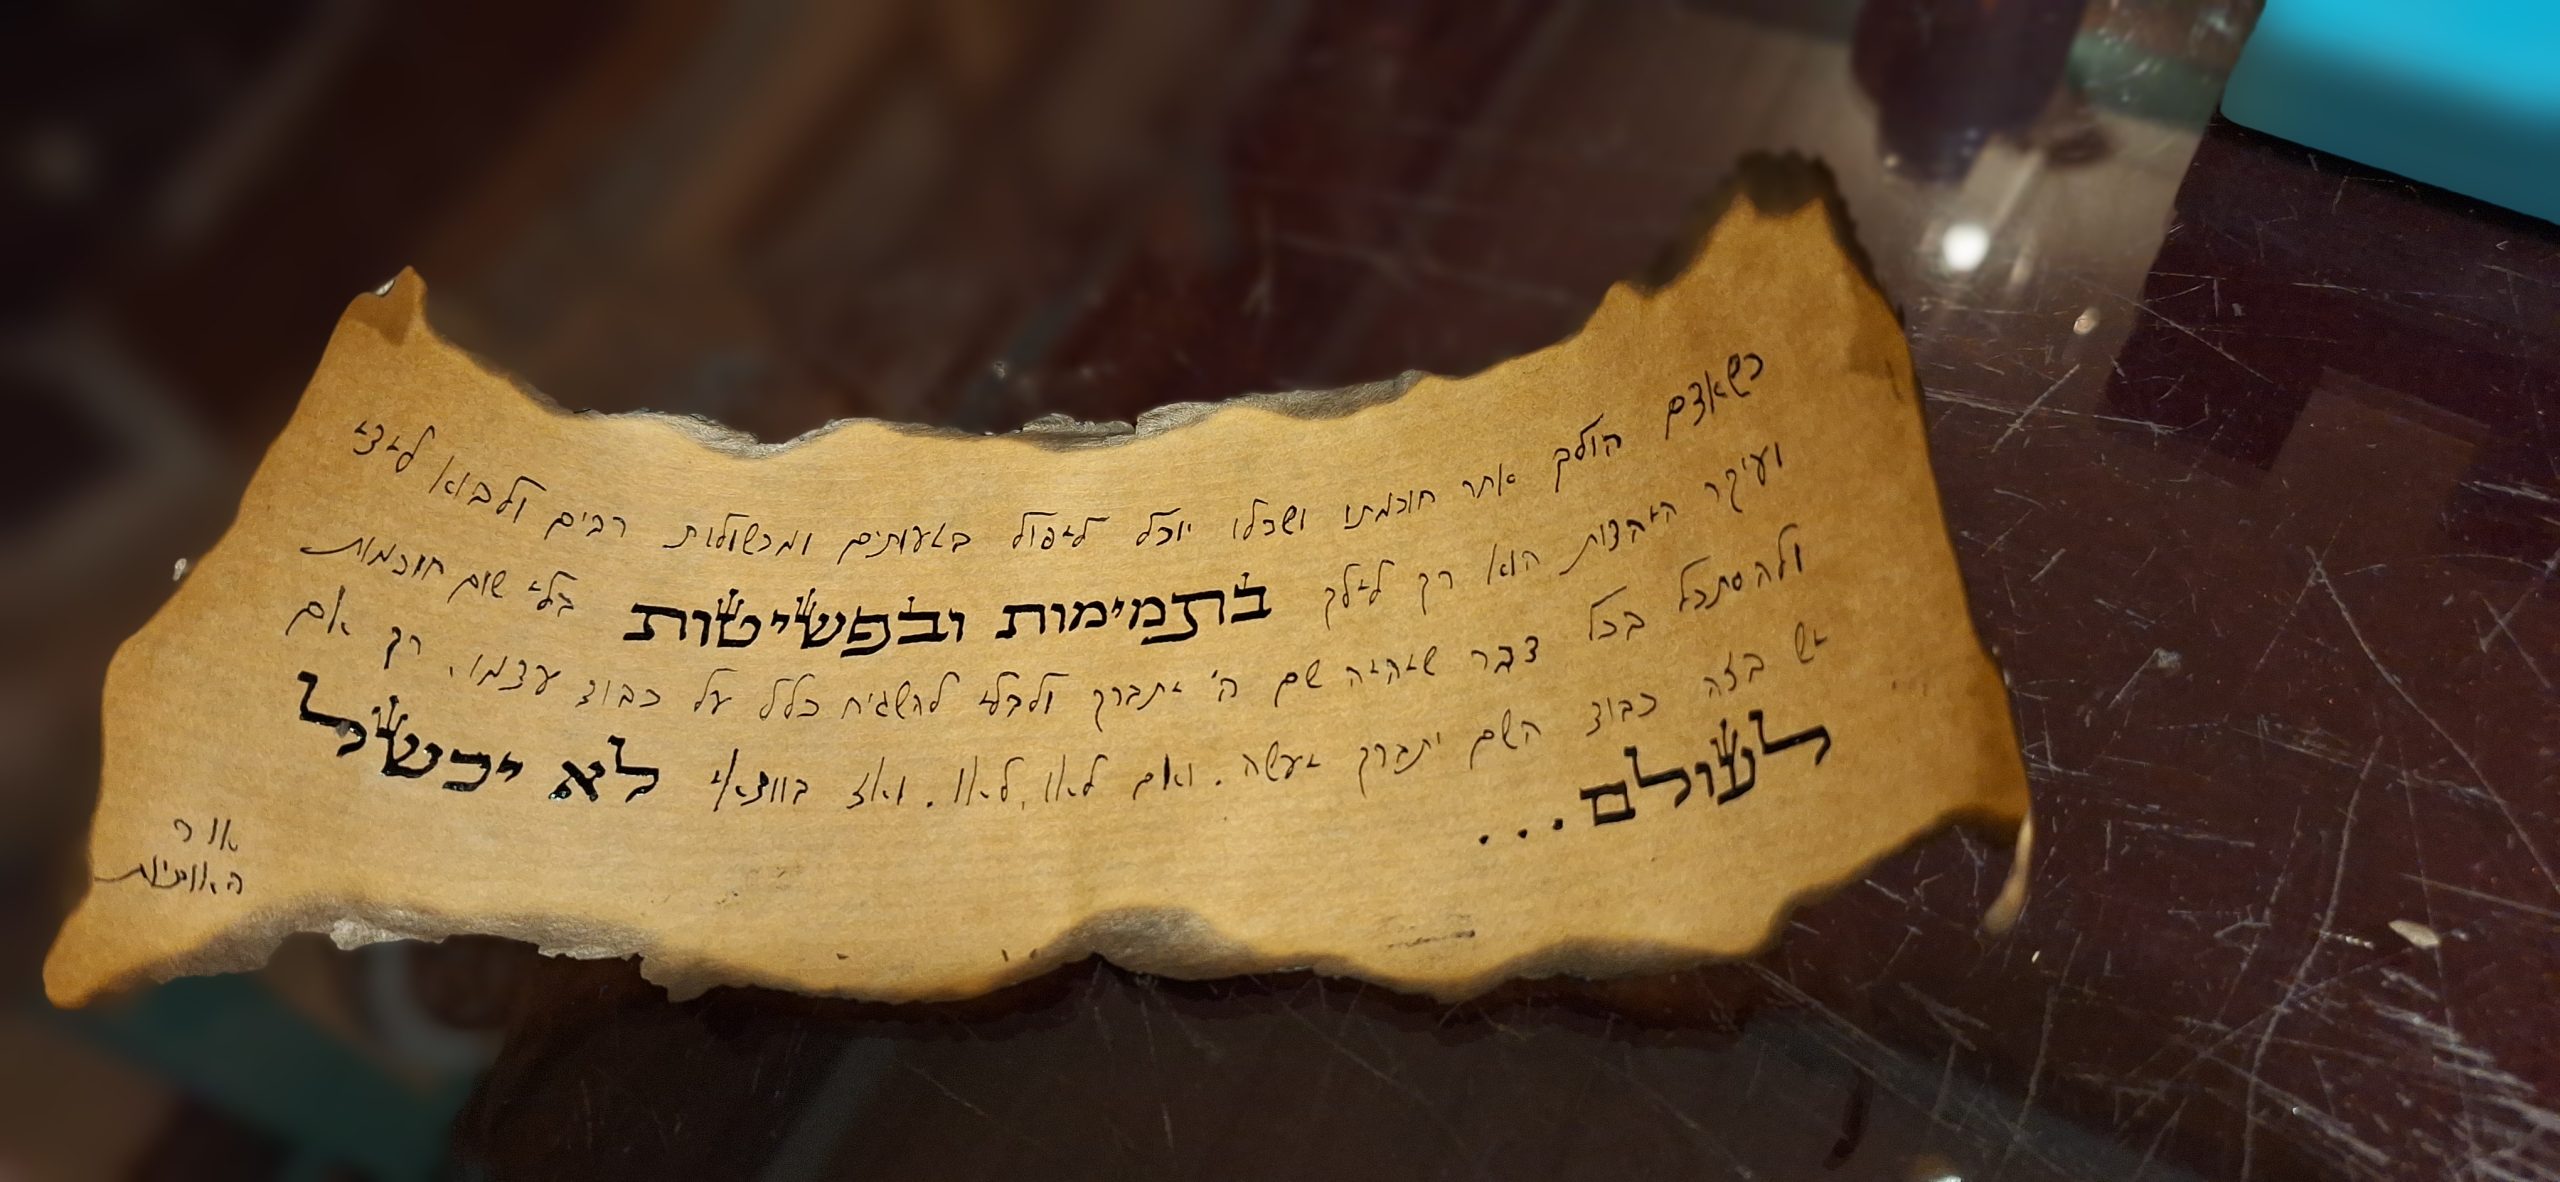 כשאדם הולך אחר חוכמתו ושכלו יוכל ליפול בטעותים ומכשולות רבים ולבוא לידי
ועיקר היהדות הוא רק לילך בתמימות ובפשיטות בלי שום חוכמות
ולהסתכל בכל דבר שיהיה שם ה' יתברך ולבלי להשגיח כלל על כבוד עצמו, רק אם
יש בזה כבוד השם יתברך יעשה. ואם לאו, לאו. ואז בוודאי לא יכשל
לעולם...
אור
האותיות